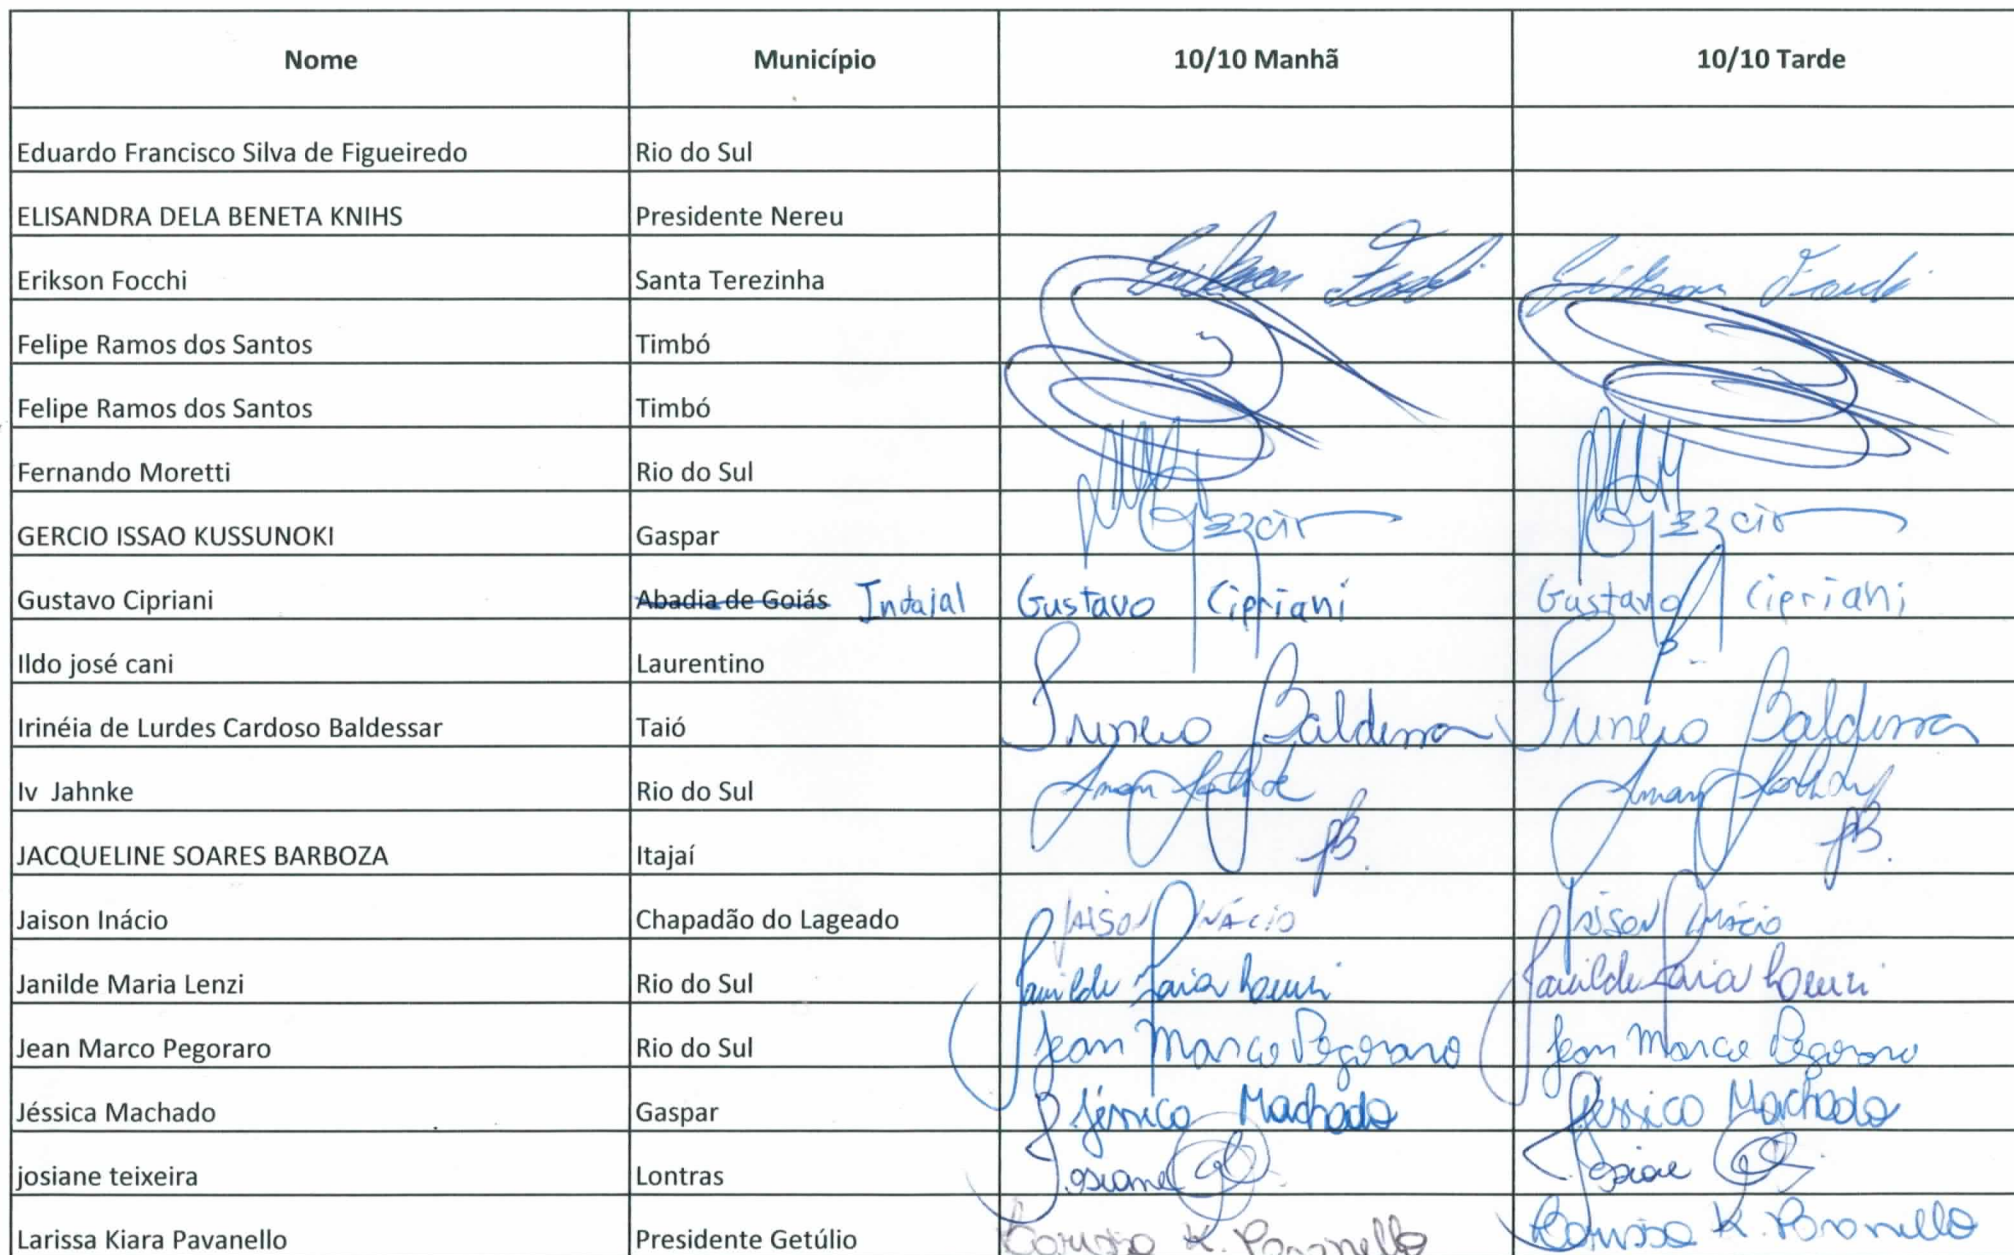 Nome Município 10/10 Manhã 10/10 Tarde
Eduardo Francisco Silva de Figueiredo Rio do Sul
ELISANDRA DELA BENETA KNIHS Presidente Nereu
Erikson Focchi Santa Terezinha Erikson Focchi Erikson Focchi
Felipe Ramos dos Santos Timbó
Felipe Ramos dos Santos Timbó
Fernando Moretti Rio do Sul
GERCIO ISSAO KUSSUNOKI Gaspar
Gustavo Cipriani Abadia de Goiás Indaial Gustavo Cipriani Gustavo Cipriani
Ildo josé cani Laurentino
Irinéia de Lurdes Cardoso Baldessar Taió
Iv Jahnke Rio do Sul
JACQUELINE SOARES BARBOZA Itajaí JB. JB.
Jaison Inácio Chapadão do Lageado JAISON INÁCIO JAISON INÁCIO
Janilde Maria Lenzi Rio do Sul Janilde Maria Lenzi Janilde Maria Lenzi
Jean Marco Pegoraro Rio do Sul Jean Marco Pegoraro Jean Marco Pegoraro
Jéssica Machado Gaspar Jéssica Machado Jéssica Machado
josiane teixeira Lontras Josiane Josiane
Larissa Kiara Pavanello Presidente Getúlio Larissa K. Pavanello Larissa K. Pavanello